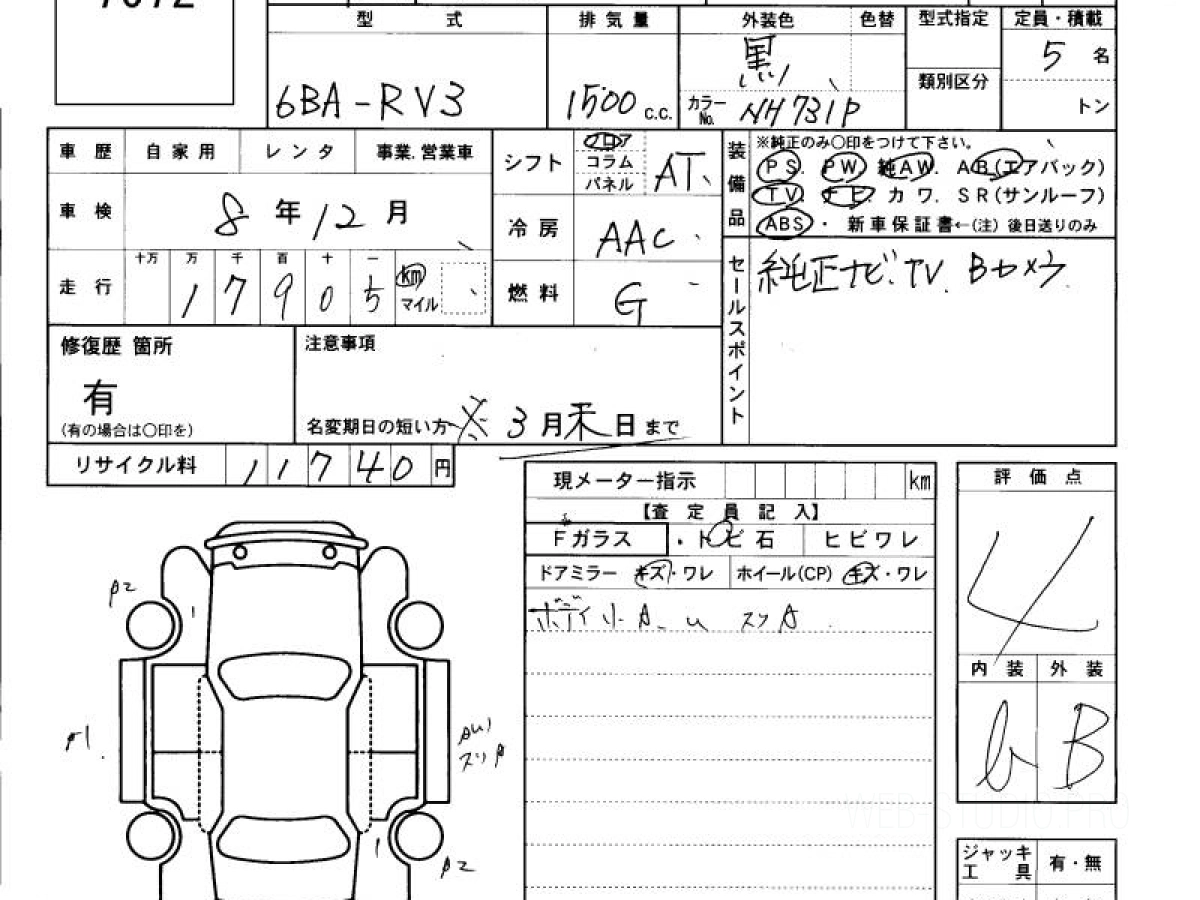 型 式 排気量 外装色 色替 型式指定 定員・積載
6BA-RV3 1500 c.c. 黒 5 名
カラーNo. NH731P 類別区分 トン
車歴 自家用 レンタ 事業.営業車
シフト フロア コラム パネル AT
装備品 ※純正のみ○印をつけて下さい。
PS. PW. 純AW. AB(エアバック)
TV. ナビ. カワ. SR(サンルーフ)
ABS ・ 新車保証書←(注) 後日送りのみ
車検 8 年 12 月
冷房 AAC
走行 十万 万 千 百 十 一
1 7 9 0 5 km マイル
燃料 G
セールスポイント 純正ナビ.TV. Bカメラ
修復歴 箇所
有
(有の場合は○印を)
注意事項
名変期日の短い方 ※ 3 月 末 日 まで
リサイクル料 1 1 7 4 0 円
現メーター指示 km
【査定員記入】
Fガラス ・トビ石 ヒビワレ
ドアミラー キズ・ワレ ホイール(CP) キズ・ワレ
ボディ小A. u スリA
評価点
4
内装 外装
b B
A2
1
A1
AU1
スリA
1
A2
ジャッキ 工具 有・無
WEB-STUDIO.PRO